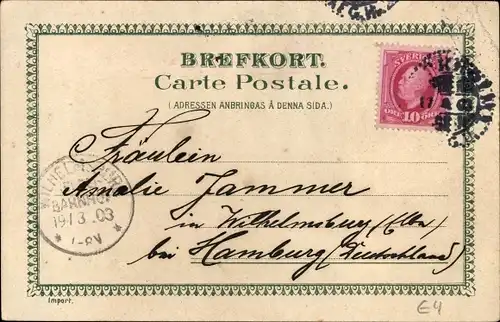 BREFKORT.
Carte Postale.
(ADRESSEN ANBRINGAS Å DENNA SIDA.)
SVERIGE
10 ÖRE 10
Fräulein
Amalie Jammer
in Wilhelmsburg (Elbe)
bei Hamburg (Deutschland)
WILHELMSBURG
BAHNHOF
19/3.03
7-8V
Import.
E4